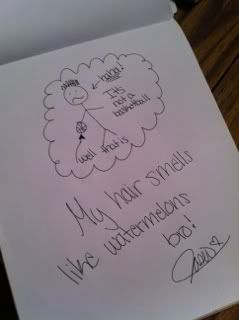 haha!
It's
not a
basketball
well that is
My hair smells
like watermelons
bro!